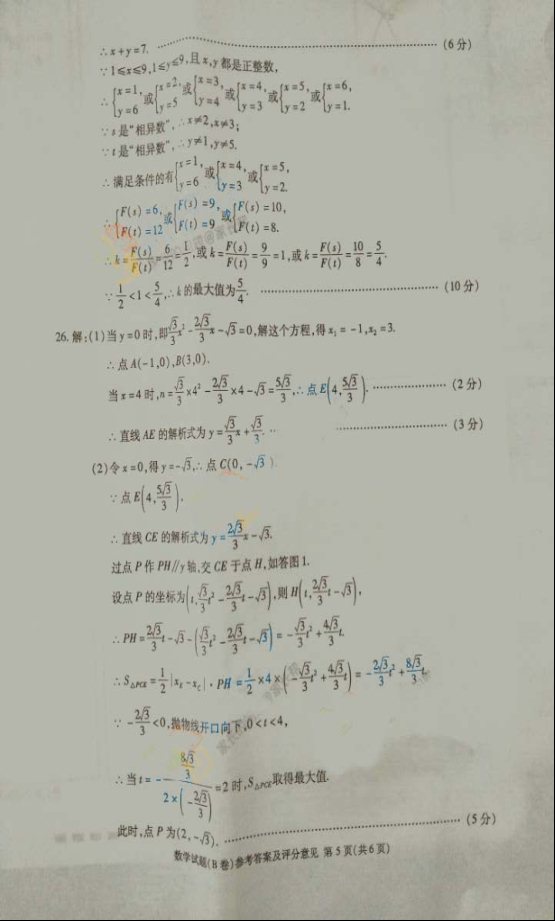 ∴x+y=7. ……………………………………(6分)
∵1≤x≤9,1≤y≤9,且x,y都是正整数,
∴{x=1,y=6 或{x=2,y=5 或{x=3,y=4 或{x=4,y=3 或{x=5,y=2 或{x=6,y=1.
∵s是“相异数”,∴x≠2,x≠3;
∵t是“相异数”,∴y≠1,y≠5.
∴满足条件的有{x=1,y=6 或{x=4,y=3 或{x=5,y=2.
∴{F(s)=6,F(t)=12 或{F(s)=9,F(t)=9 或{F(s)=10,F(t)=8.
∴k=F(s)/F(t)=6/12=1/2,或k=F(s)/F(t)=9/9=1,或k=F(s)/F(t)=10/8=5/4.
∵1/2<1<5/4,∴k的最大值为5/4. ……………………………(10分)
26.解:(1)当y=0时,即√3/3x²-2√3/3x-√3=0,解这个方程,得x₁=-1,x₂=3.
∴点A(-1,0),B(3,0).
当x=4时,n=√3/3×4²-2√3/3×4-√3=5√3/3,∴点E(4,5√3/3). ……………(2分)
∴直线AE的解析式为y=√3/3x+√3/3. ……………………(3分)
(2)令x=0,得y=-√3,∴点C(0,-√3)
∵点E(4,5√3/3),
∴直线CE的解析式为y=2√3/3x-√3.
过点P作PH//y轴,交CE于点H,如答图1.
设点P的坐标为(t,√3/3t²-2√3/3t-√3),则H(t,2√3/3t-√3),
∴PH=2√3/3t-√3-(√3/3t²-2√3/3t-√3)=-√3/3t²+4√3/3t.
∴S△PCE=1/2|x_E-x_C|·PH=1/2×4×(-√3/3t²+4√3/3t)=-2√3/3t²+8√3/3t,
∵-2√3/3<0,抛物线开口向下,0<t<4,
∴当t=-(8√3/3)/(2×(-2√3/3))=2时,S△PCE取得最大值.
此时,点P为(2,-√3). ……………………………………(5分)
数学试题(B卷)参考答案及评分意见 第5页(共6页)